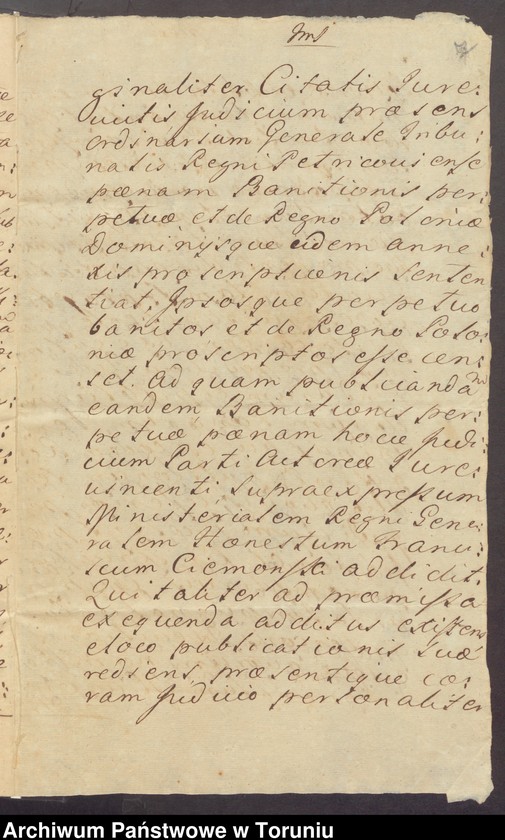 ginaliter Citatis Jure:
victis Judicium præsens
ordinarium Generale Tribu:
nalis Regni Petricoviense
pænam Banitionis per:
petuæ et de Regno Poloniæ
Dominijsque eidem anne:
xis proscriptionis senten
tiat. Ipsosque perpetuo
banitos et de Regno Polo:
niæ proscriptos esse cen:
set. Ad quam publicandam
eandem Banitionis per:
petuæ pænam hocce Judi:
cium Parti Actoreæ Jure:
vincenti, supraexpressum
Ministerialem Regni Gene:
ralem Honestum Franci:
scum Ciemoński addidit.
Qui taliter ad præmissa
exequenda additus existens
eloco publicationis suæ
rediens, præsentique co:
ram Judicio personaliter
Archiwum Państwowe w Toruniu